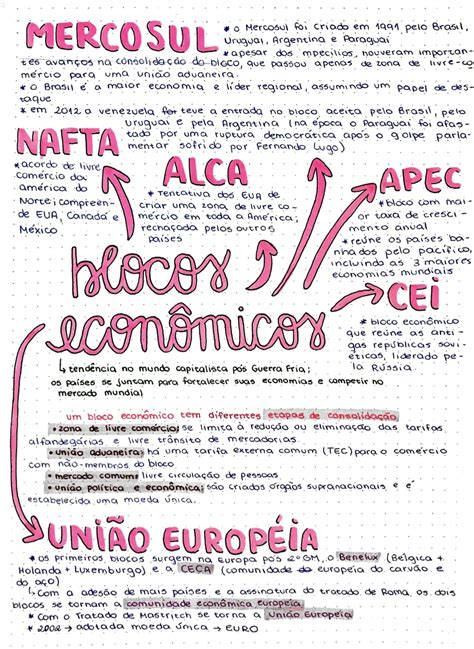 MERCOSUL
* o Mercosul foi criado em 1991 pelo Brasil,
Uruguai, Argentina e Paraguai
* apesar dos mpecilios, houveram importan-
tes avanços na consolidação do bloco, que passou apenas de zona de livre-co
mércio para uma união aduaneira.
* o Brasil é a maior economia e líder regional, assumindo um papel de des-
taque
* em 2012 a venezuela teve a entrada no bloco aceita pelo Brasil, pelo
Uruguai e pela Argentina (na época o Paraguai foi afas-
tado por uma ruptura democrática após o golpe parla-
mentar sofrido por Fernando Lugo)
NAFTA
* acordo de livre
comércio da
américa do
Norte; compreen-
de EUA, Canadá e
México
ALCA
* tentativa dos EUA de
criar uma zona de livre co-
mércio em toda a América;
rechaçada pelos outros
países
APEC
* bloco com mai
or taxa de cresci
mento anual
* reúne os países ba-
nhados pelo pacífico,
incluindo as 3 maiores
economias mundiais
CEI
* bloco econômico
que reúne as anti-
gas repúblicas sovi-
éticas, liderado pe-
la Rússia.
blocos
econômicos
↳ tendência no mundo capitalisca pós Guerra Fria;
os países se juntam para fortalecer suas economias e competir no
mercado mundial
um bloco econômico tem diferentes etapas de consolidação
• zona de livre comércio: se limita à redução ou eliminação das tarifas
alfandegárias e livre trânsito de mercadorias.
• união aduaneira: há uma tarifa externa comum (TEC) para o comércio
com não-membros do bloco
• mercado comum: livre circulação de pessoas
• união política e econômica: são criados órgãos supranacionais e é
estabelecida uma moeda única.
UNIÃO EUROPÉIA
* os primeiros blocos surgem na Europa pós 2ª GM, o Benelux (Bélgica +
Holanda + Luxemburgo) e a CECA (comunidade europeia do carvão e
do aço)
↳ Com a adesão de mais países e a assinatura do tratado de Roma, os dois
blocos se tornam a comunidade econômica europeia
* Com o Tratado de Mastritch se torna a União Europeia
* 2002 → adotada moeda única → EURO